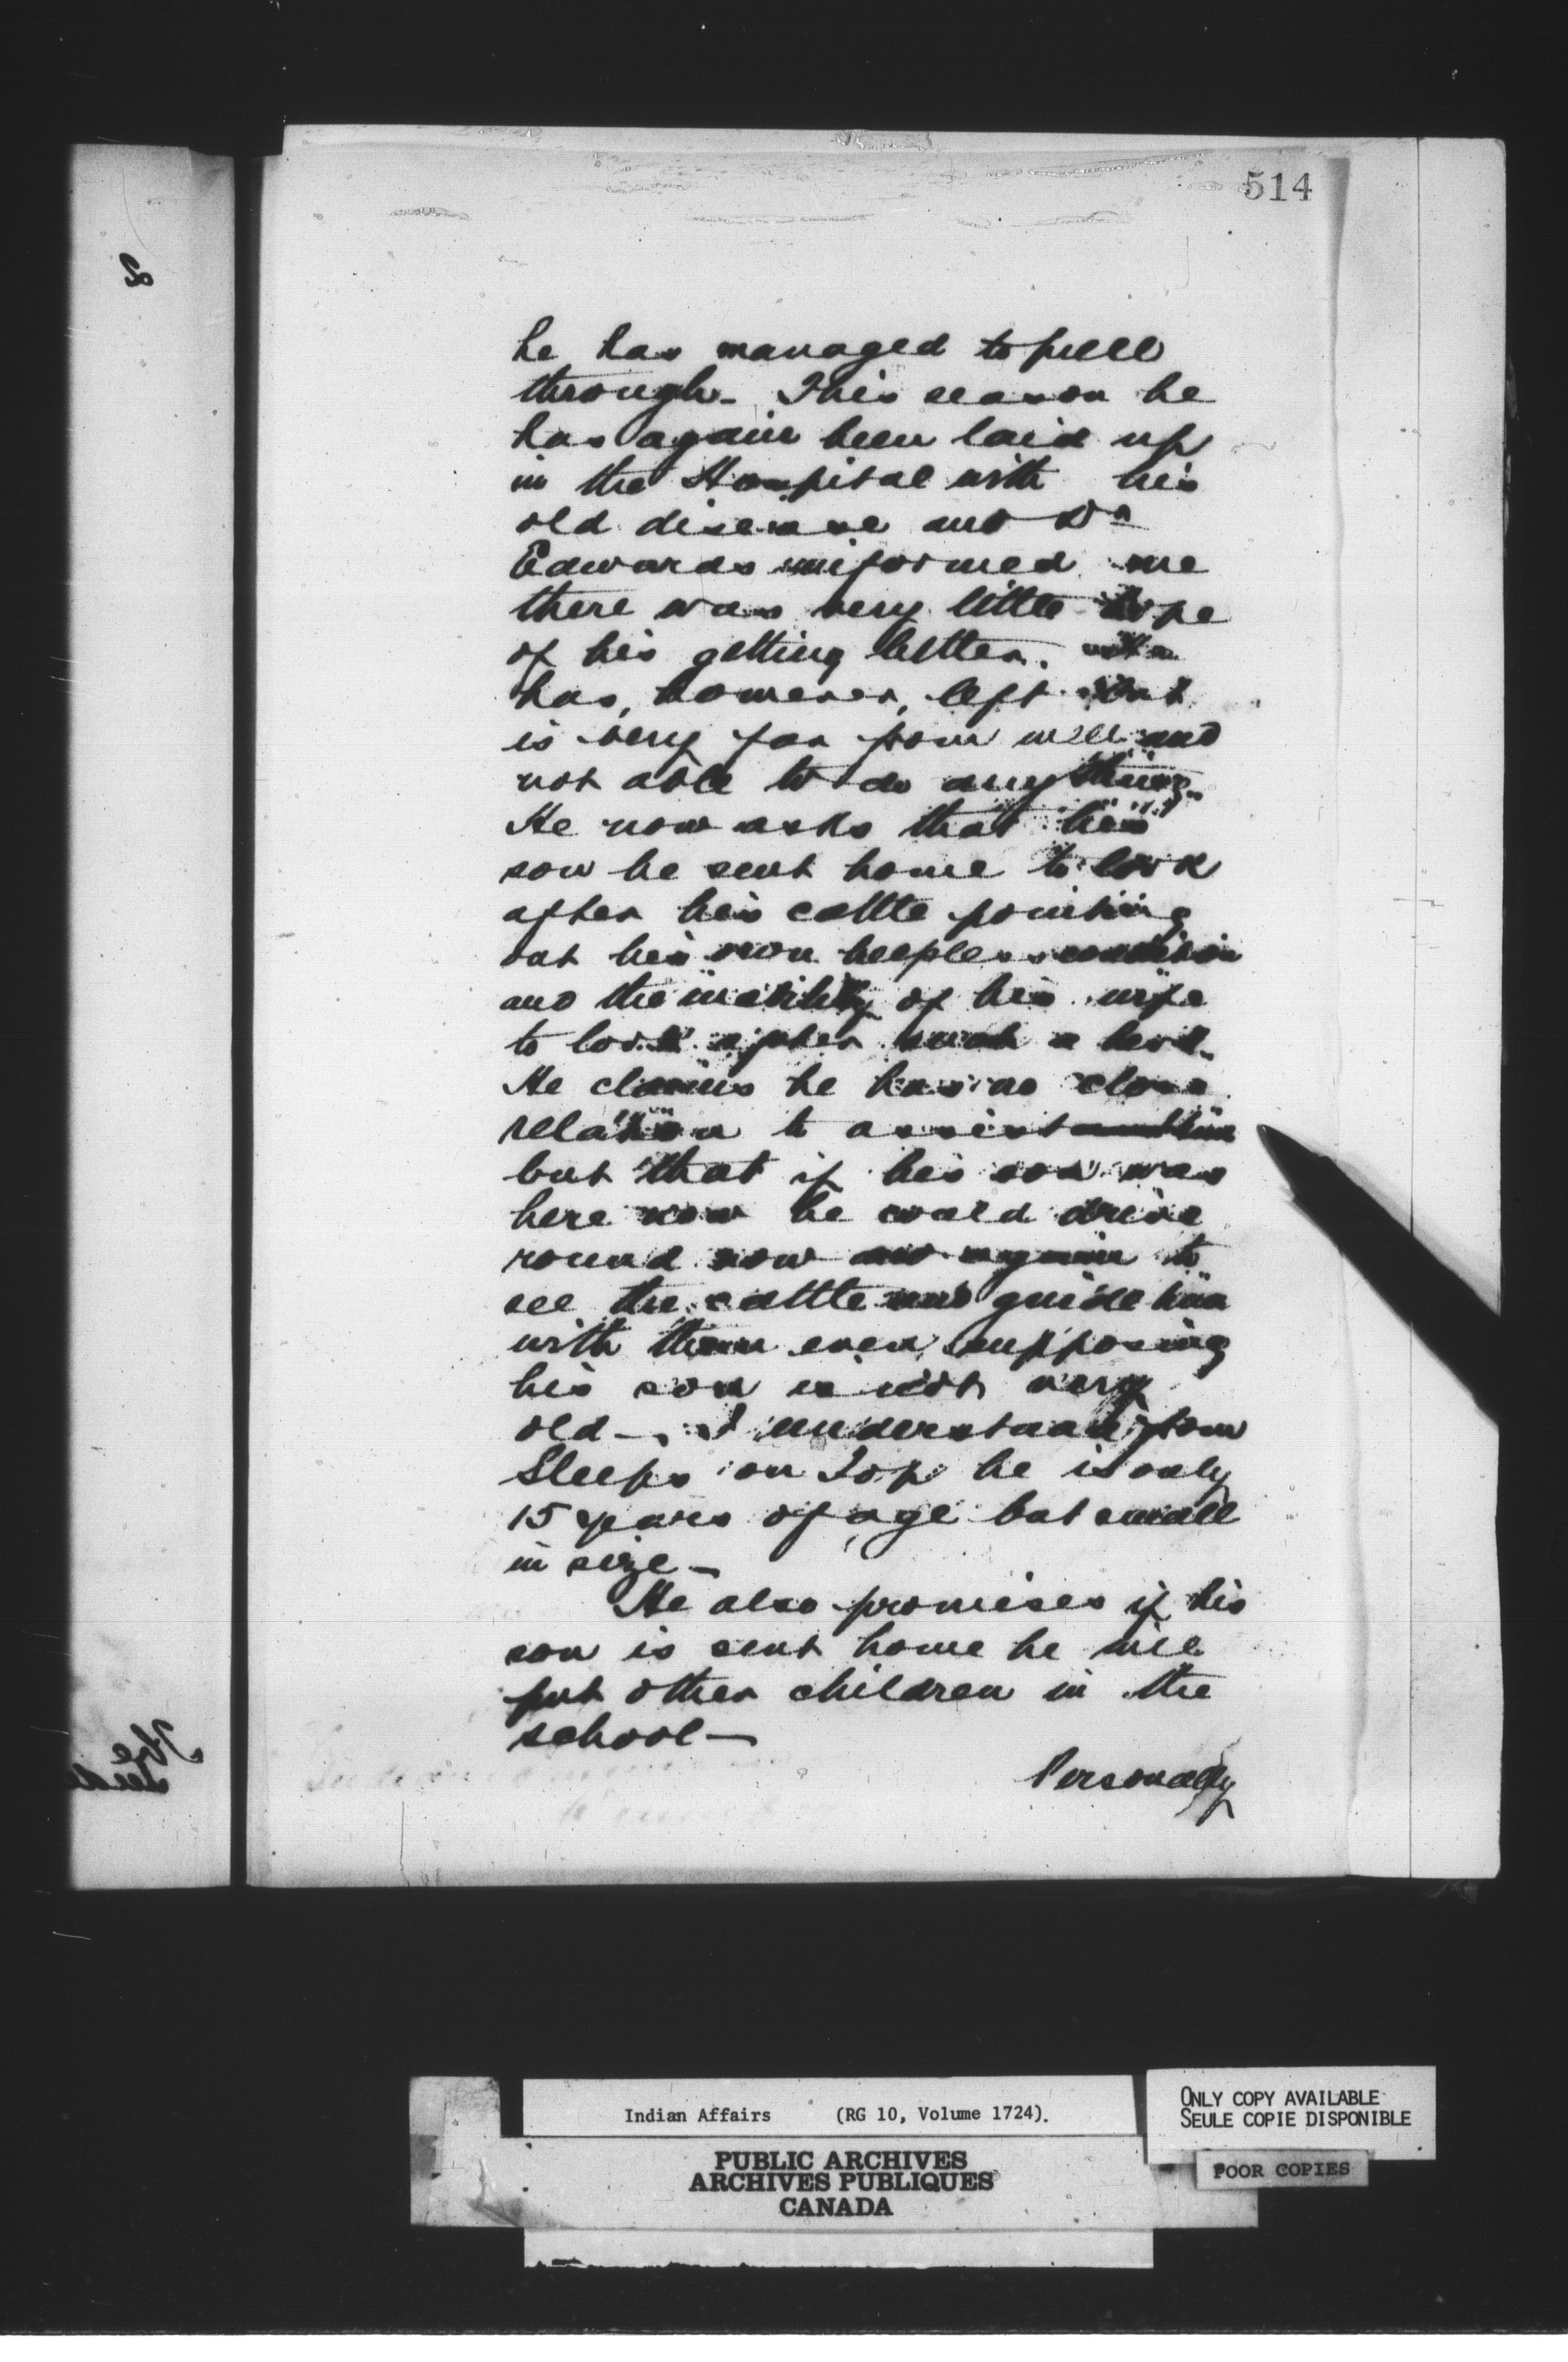 514
he has managed to pull
through - This season he
has again been laid up
in the Hospital with his
old disease and Dr
Edwards informed me
there was very little hope
of his getting better. He
has, however, left but
is very far from well and
not able to do anything.
He now asks that his
son be sent home to look
after his cattle pointing
out his own helpless condition
and the inability of his wife
to look after such a herd.
He claims he has no close
relation to assist
but that if his son was
here now he could drive
round now and again to
see the cattle and guide him
with them even supposing
his son is not very
old - I understand from
Sleeps on Top he is only
15 years of age but small
in size -
He also promises if his
son is sent home he will
put other children in the
school -
Personally
Indian Affairs (RG 10, Volume 1724).
PUBLIC ARCHIVES
ARCHIVES PUBLIQUES
CANADA
ONLY COPY AVAILABLE
SEULE COPIE DISPONIBLE
POOR COPIES